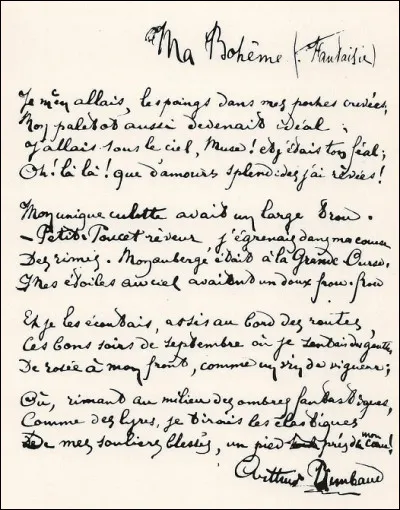 Ma Bohême (Fantaisie)
Je m'en allais, les poings dans mes poches crevées;
Mon paletot aussi devenait idéal;
J'allais sous le ciel, Muse! et j'étais ton féal;
Oh! là là! que d'amours splendides j'ai rêvées!
Mon unique culotte avait un large trou.
– Petit-Poucet rêveur, j'égrenais dans ma course
Des rimes. Mon auberge était à la Grande Ourse.
Mes étoiles au ciel avaient un doux frou-frou
Et je les écoutais, assis au bord des routes,
Ces bons soirs de septembre où je sentais des gouttes
De rosée à mon front, comme un vin de vigueur;
Où, rimant au milieu des ombres fantastiques,
Comme des lyres, je tirais les élastiques
De mes souliers blessés, un pied près de mon cœur!
Arthur Rimbaud